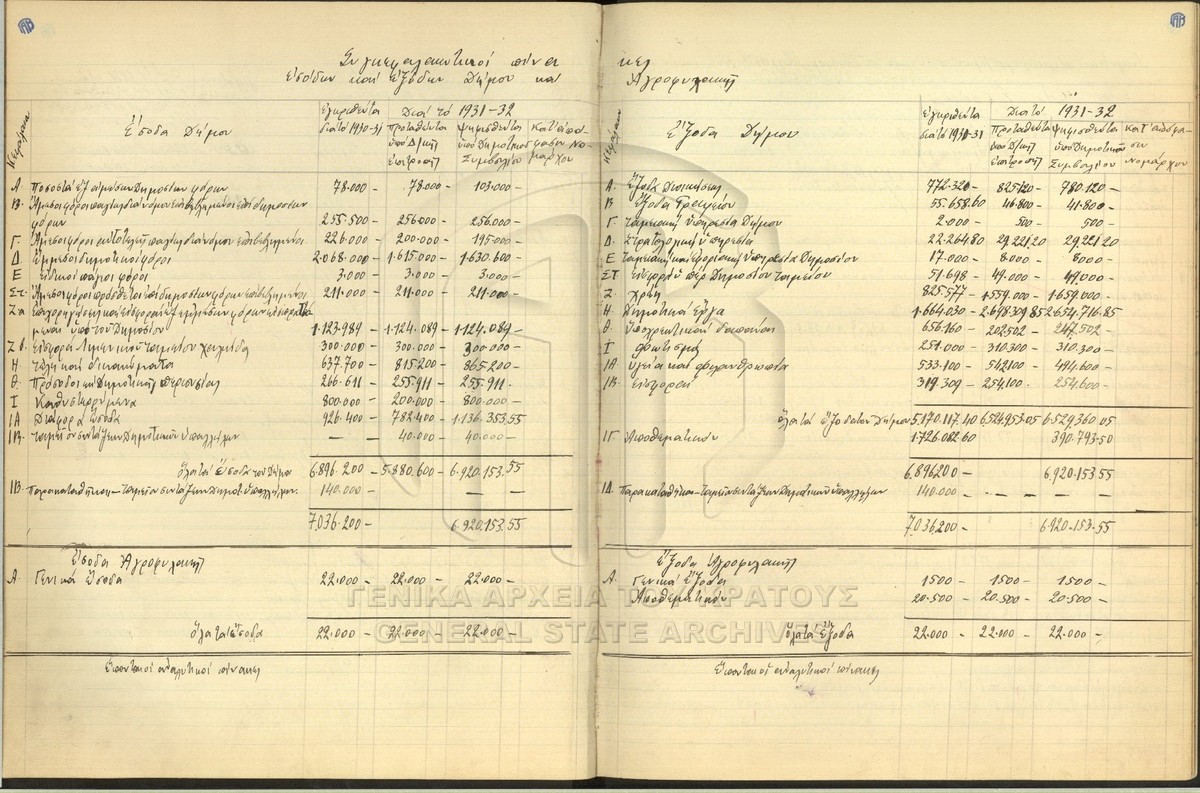 Συγκεφαλαιωτικοί πίνακες
Εσόδων και Εξόδων Δήμου και Αγροφυλακής
Κεφάλαια
Έσοδα Δήμου
Εγκριθέντα διά τό 1930-31
Διά τό 1931-32
Προταθέντα υπό Δ/κής Επιτροπής
Ψηφισθέντα υπό Δημοτικού Συμβουλίου
Κατ' απόφασιν Νομάρχου
Α Ποσοστά εξ αμέσων Δημοσίων φόρων 78.000 - 78.000 - 103.000 -
Β. Άμεσοι φόροι δημοσίων
φόρων 255.500 - 256.000 - 256.000 -
Γ. Άμεσοι φόροι αυτοτελείς 226.000 - 200.000 - 195.000 -
Δ. Έμμεσοι δημοτικοί φόροι 2.068.000 - 1.615.000 - 1.630.600 -
Ε Ειδικοί πάγιοι φόροι 3.000 - 3.000 - 3.000 -
Στ. Άμεσοι φόροι πρόσθετοι 211.000 - 211.000 - 211.000 -
Ζα
υπό του Δημοσίου 1.123.989 - 1.124.089 - 1.124.089 -
Ζβ. Εισφορά Λιμενικού ταμείου Χαλκίδα 300.000 - 300.000 - 300.000 -
Η Τέλη και δικαιώματα 637.700 - 815.200 - 865.200 -
Θ. Πρόσοδοι εκ Δημοτικής περιουσίας 266.611 - 255.911 - 255.911 -
Ι Καθυστερούμενα 800.000 - 200.000 - 800.000 -
ΙΑ Διάφορα Έσοδα 926.400 - 782.400 - 1.136.353.55
ΙΒ. συντάξεων Δημοτικών Υπαλλήλων - - 40.000 - 40.000 -
Όλα τά Έσοδα του Δήμου 6.896.200 - 5.880.600 - 6.920.153.55
ΙΒ. Παρακαταθήκαι - ταμεία συντάξεων Δημοτ. Υπαλλήλων. 140.000 - - -
7.036.200 - 6.920.153.55
Έσοδα Αγροφυλακής
Α. Γενικά Έσοδα 22.000 - 22.000 - 22.000 -
Όλα τά έσοδα 22.000 - 22.000 - 22.000 -
Έπονται οι αναλυτικοί πίνακες
Κεφάλαια
Έξοδα Δήμου
Εγκριθέντα διά τό 1930-31
Διά τό 1931-32
Προταθέντα υπό Δ/κής Επιτροπής
Ψηφισθέντα υπό Δημοτικού Συμβουλίου
Κατ' απόφασιν Νομάρχου
Α. Έξοδα Διοικήσεως 772.320 - 825.120 - 780.120 -
Β Έξοδα Γραφείων 55.658.60 46.800 - 41.800 -
Γ. Ταμειακή υπηρεσία Δήμου 2.000 - 500 - 500 -
Δ. Στρατολογική υπηρεσία 22.264.80 29.221.20 29.221.20
Ε Ταμειακή και εφοριακή υπηρεσία Δημοσίου 17.000 - 8.000 - 8.000 -
ΣΤ Εισφοραί υπέρ Δημοσίου ταμείου 51.698 - 49.000 - 49.000 -
Ζ. Χρέη 825.577 - 1.559.000 - 1.659.000 -
Η. Δημοτικά Έργα 1.664.030 - 2.698.309.85 2.654.716.85
Θ. Υποχρεωτικαί δαπάναι 656.160 - 202.502 - 247.502 -
Ι Φωτισμός 251.000 - 310.300 - 310.300 -
ΙΑ. Υγεία και φιλανθρωπία 533.100 - 542.100 - 494.600 -
ΙΒ. Εισφοραί 319.309 - 254.100 - 254.600 -
Όλα τά έξοδα του Δήμου 5.170.117.40 6.524.953.05 6.529.360.05
ΙΓ. Αποθεματικόν 1.726.082.60 390.793.50
6.896.200 - 6.920.153.55
ΙΔ. Παρακαταθήκαι - ταμεία συντάξεων Δημοτικών υπαλλήλων 140.000 - - - - -
7.036.200 - 6.920.153.55
Έξοδα Αγροφυλακής
Α. Γενικά Έξοδα 1500 - 1500 - 1500 -
Αποθεματικόν 20.500 - 20.500 - 20.500 -
Όλα τά Έξοδα 22.000 - 22.000 - 22.000 -
Έπονται οι αναλυτικοί πίνακες
ΓΕΝΙΚΑ ΑΡΧΕΙΑ ΤΟΥ ΚΡΑΤΟΥΣ
GENERAL STATE ARCHIVES